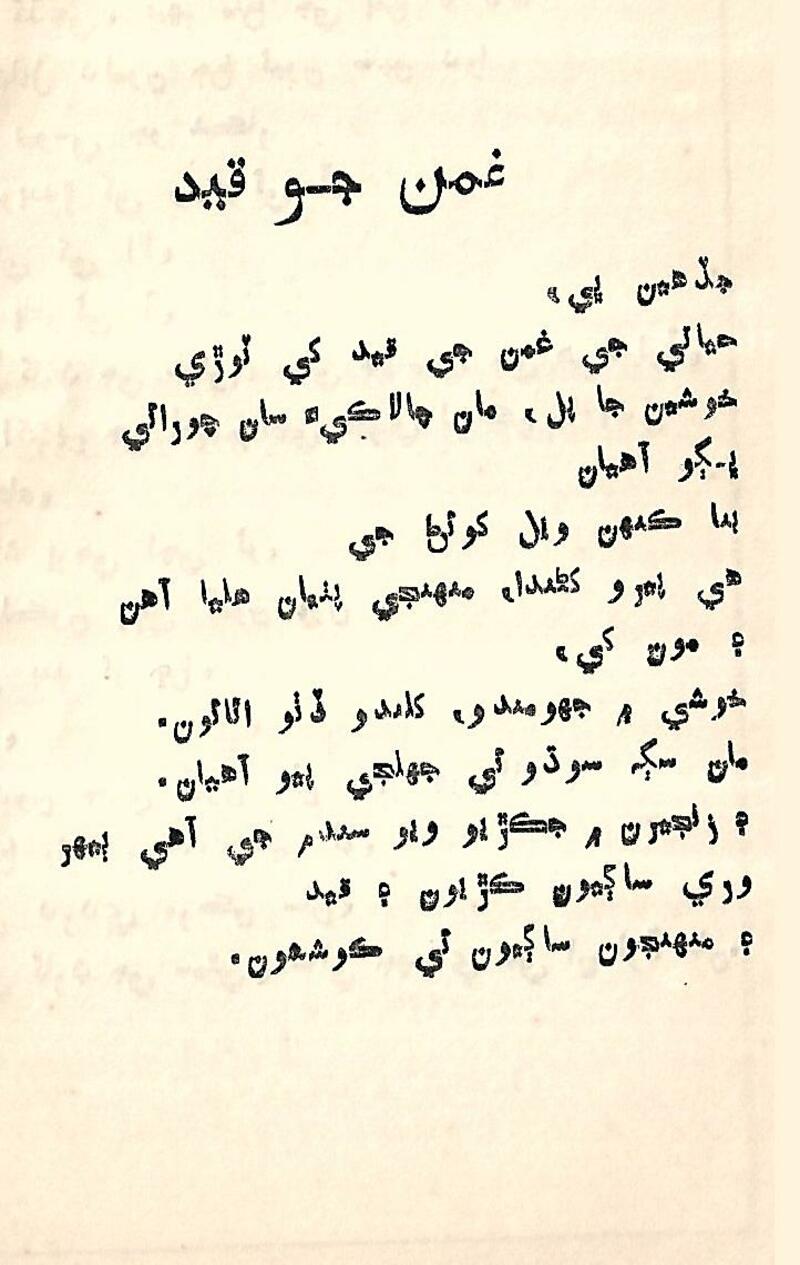 غمن جو قيد
جڏهين ڀي،
حياتي جي غمن جي قيد کي ٽوڙي
خوشين جا پل، مان چالاڪيءَ سان چورائي
ڀڳو آهيان
بنا ڪنهن ويل کوئڻ جي
هي پيرو کڻندا، منهنجي پٺيان هليا آهن
۽ مون کي،
خوشي ۾ جهومندو، کلندو ڏٺو اٿائون.
مان سگهه سوڌو ئي جهلجي پيو آهيان.
۽ زنجيرن ۾ جڪڙيو ويو سندم جي آهي پيهر
وري ساڳيون ڪڙيون ۽ قيد
۽ منهنجون ساڳيون ئي ڪوششون.